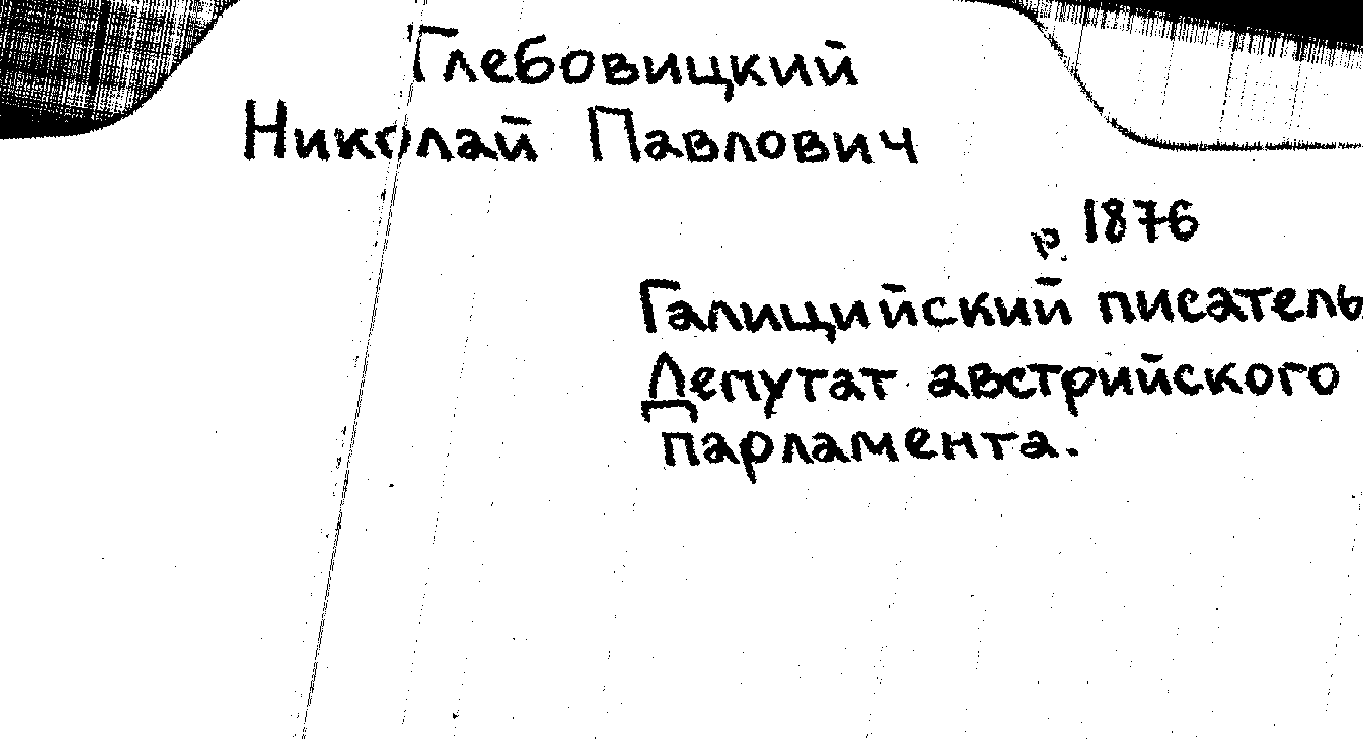 Глебовицкий
Николай Павлович
р. 1876
Галицийский писатель
Депутат австрийского
парламента.